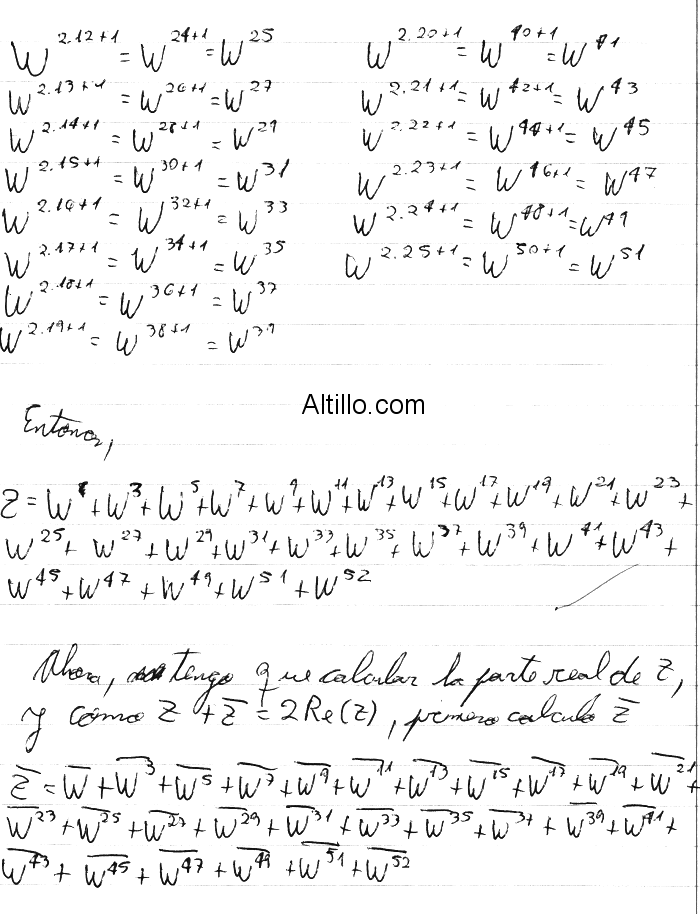 W^{2.12+1} = W^{24+1} = W^{25}
W^{2.13+1} = W^{26+1} = W^{27}
W^{2.14+1} = W^{28+1} = W^{29}
W^{2.15+1} = W^{30+1} = W^{31}
W^{2.16+1} = W^{32+1} = W^{33}
W^{2.17+1} = W^{34+1} = W^{35}
W^{2.18+1} = W^{36+1} = W^{37}
W^{2.19+1} = W^{38+1} = W^{39}
W^{2.20+1} = W^{40+1} = W^{41}
W^{2.21+1} = W^{42+1} = W^{43}
W^{2.22+1} = W^{44+1} = W^{45}
W^{2.23+1} = W^{46+1} = W^{47}
W^{2.24+1} = W^{48+1} = W^{49}
W^{2.25+1} = W^{50+1} = W^{51}
Altillo.com
Entonces,
Z = W^{1} + W^{3} + W^{5} + W^{7} + W^{9} + W^{11} + W^{13} + W^{15} + W^{17} + W^{19} + W^{21} + W^{23} +
W^{25} + W^{27} + W^{29} + W^{31} + W^{33} + W^{35} + W^{37} + W^{39} + W^{41} + W^{43} +
W^{45} + W^{47} + W^{49} + W^{51} + W^{52}
Ahora, tengo que calcular la parte real de Z,
y como Z + Z̅ = 2Re(Z), primero calculo Z̅
Z̅ = W̅ + W̅^{3} + W̅^{5} + W̅^{7} + W̅^{9} + W̅^{11} + W̅^{13} + W̅^{15} + W̅^{17} + W̅^{19} + W̅^{21} +
W̅^{23} + W̅^{25} + W̅^{27} + W̅^{29} + W̅^{31} + W̅^{33} + W̅^{35} + W̅^{37} + W̅^{39} + W̅^{41} +
W̅^{43} + W̅^{45} + W̅^{47} + W̅^{49} + W̅^{51} + W̅^{52}